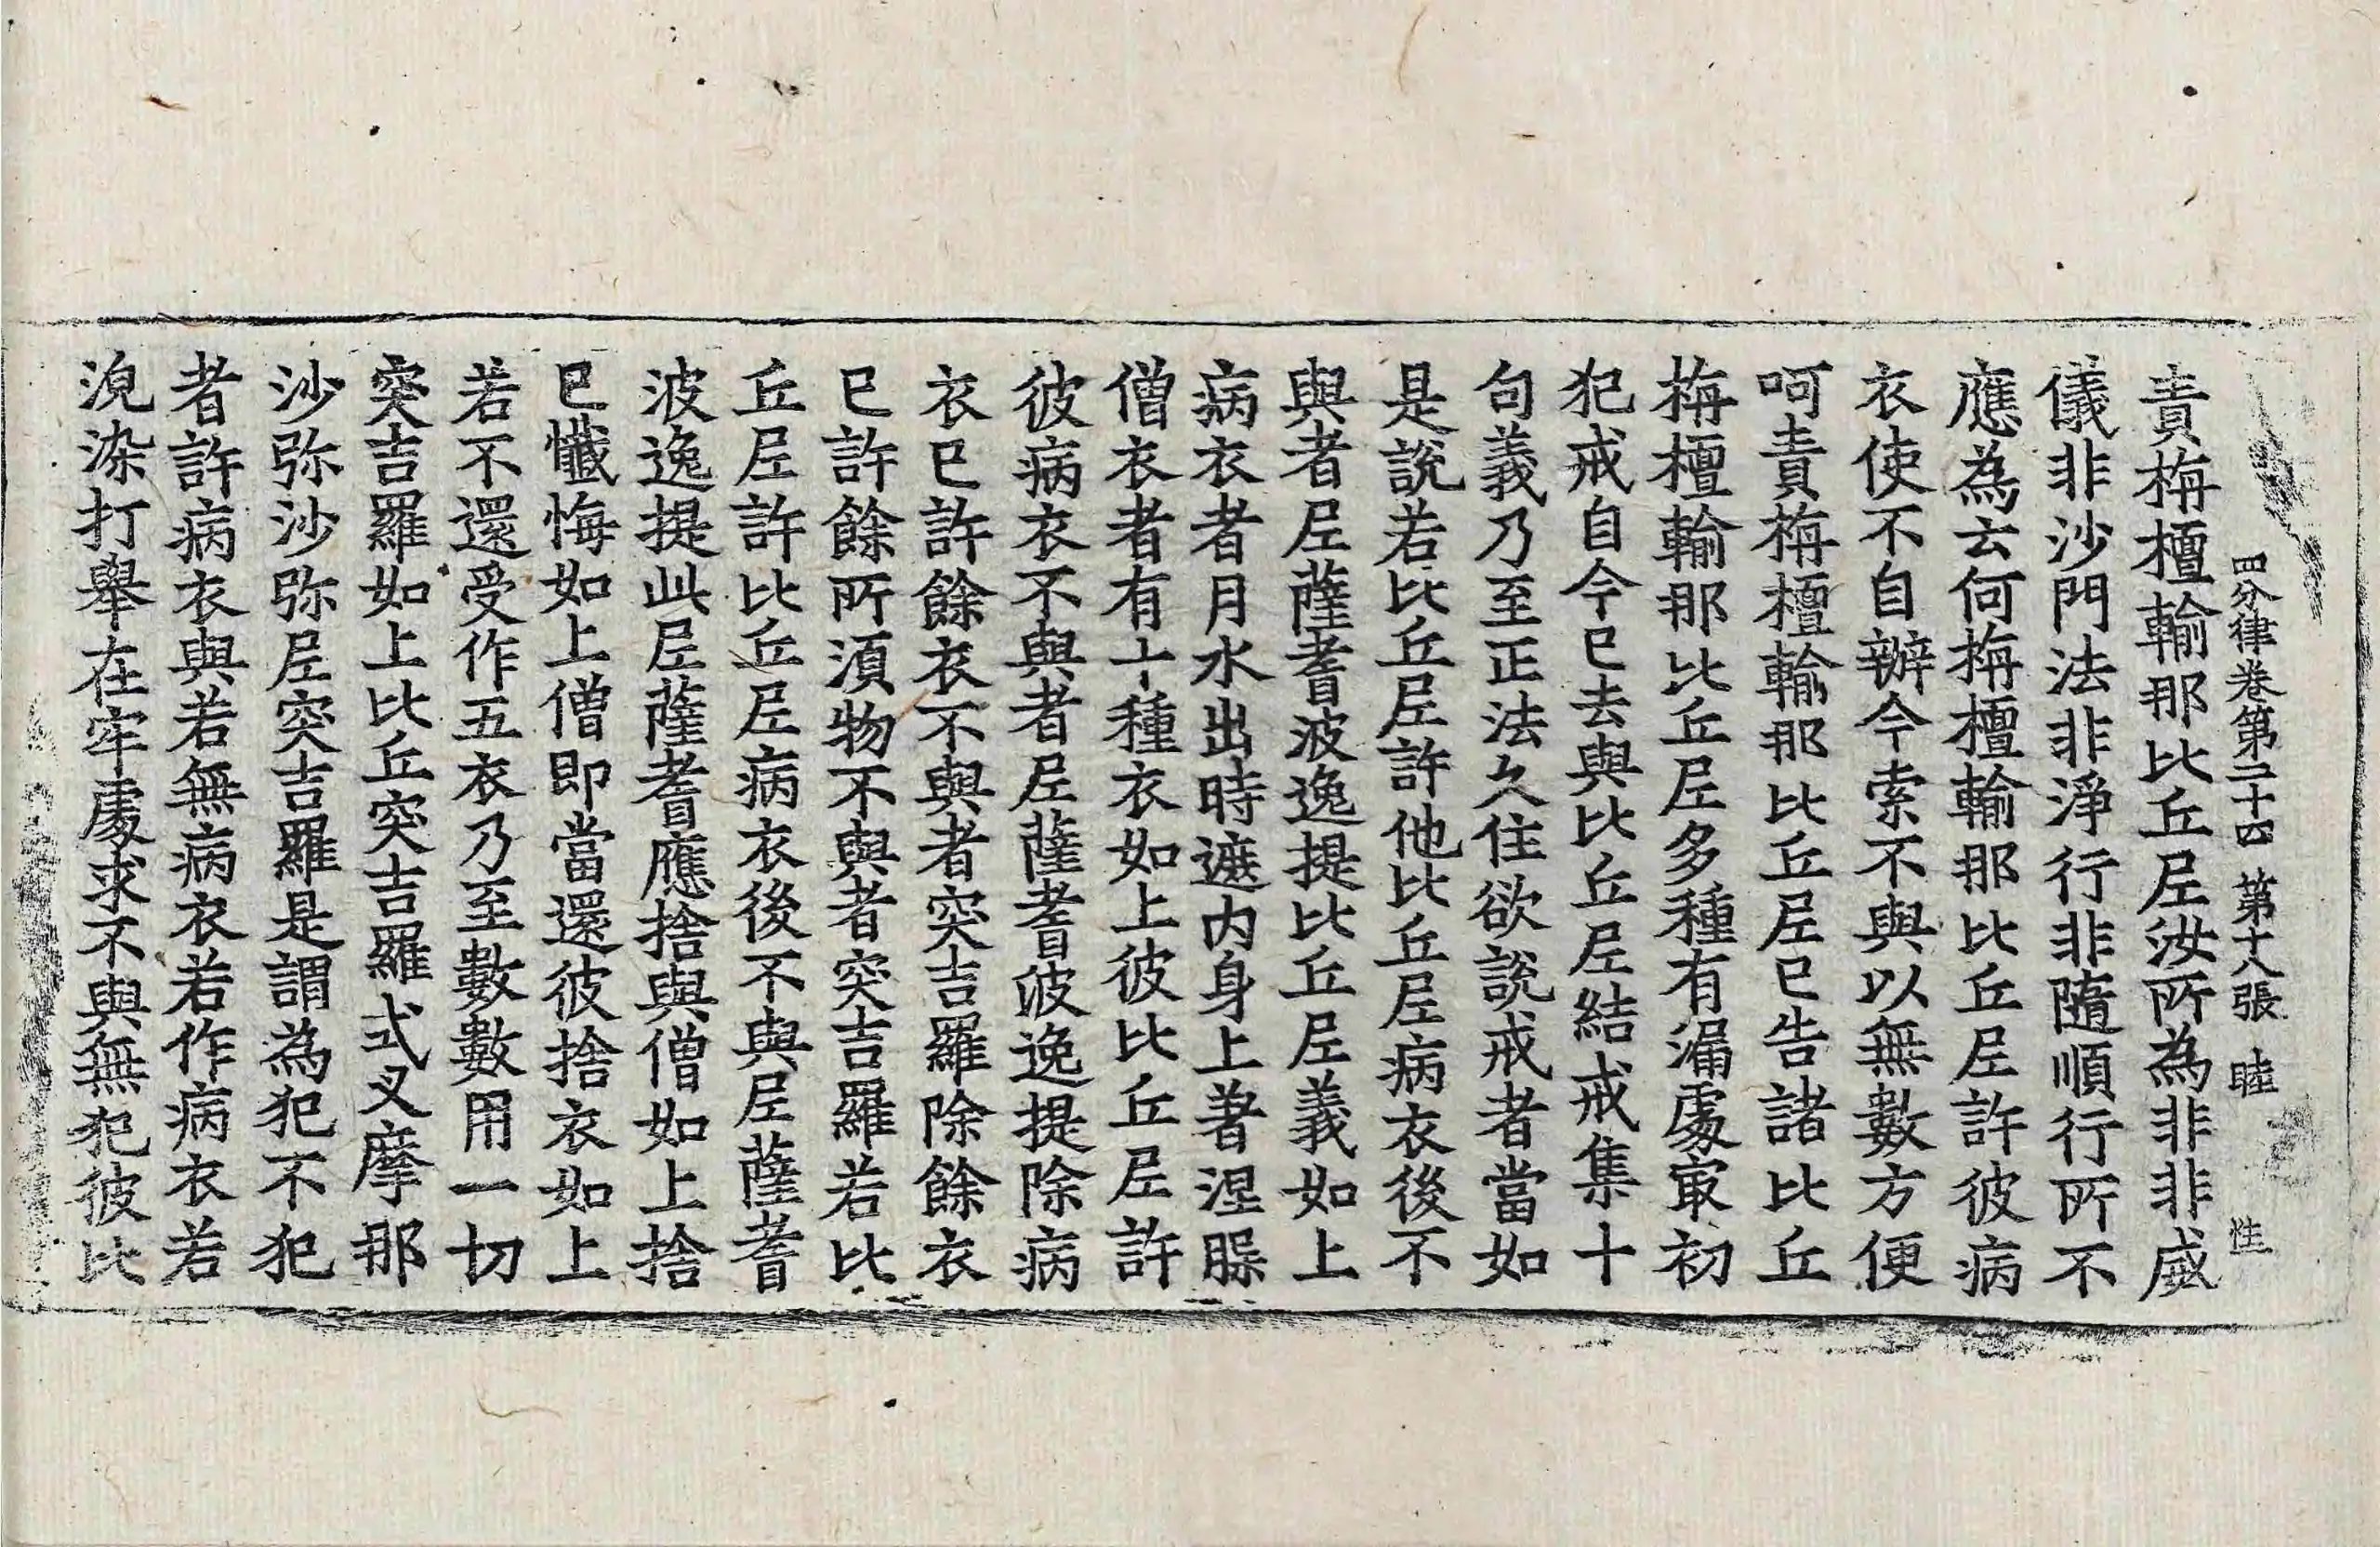 四分律卷第二十四 第十八張 睦 性
責栴檀輸那比丘尼汝所為非非威
儀非沙門法非淨行非隨順行所不
應為云何栴檀輸那比丘尼許彼病
衣使不自辦今索不與以無數方便
呵責栴檀輸那比丘尼已告諸比丘
栴檀輸那比丘尼多種有漏處㝡初
犯戒自今已去與比丘尼結戒集十
句義乃至正法久住欲說戒者當如
是說若比丘尼許他比丘尼病衣後不
與者尼薩耆波逸提比丘尼義如上
病衣者月水出時遮内身上著涅𣪍
僧衣者有十種衣如上彼比丘尼許
彼病衣不與者尼薩耆波逸提除病
衣已許餘衣不與者突吉羅除餘衣
已許餘所須物不與者突吉羅若比
丘尼許比丘尼病衣後不與尼薩耆
波逸提此尼薩耆應捨與僧如上捨
已懺悔如上僧即當還彼捨衣如上
若不還受作五衣乃至數數用一切
突吉羅如上比丘突吉羅式叉摩那
沙弥沙弥尼突吉羅是謂為犯不犯
者許病衣與若無病衣若作病衣若
浣染打舉在牢處求不與無犯彼比